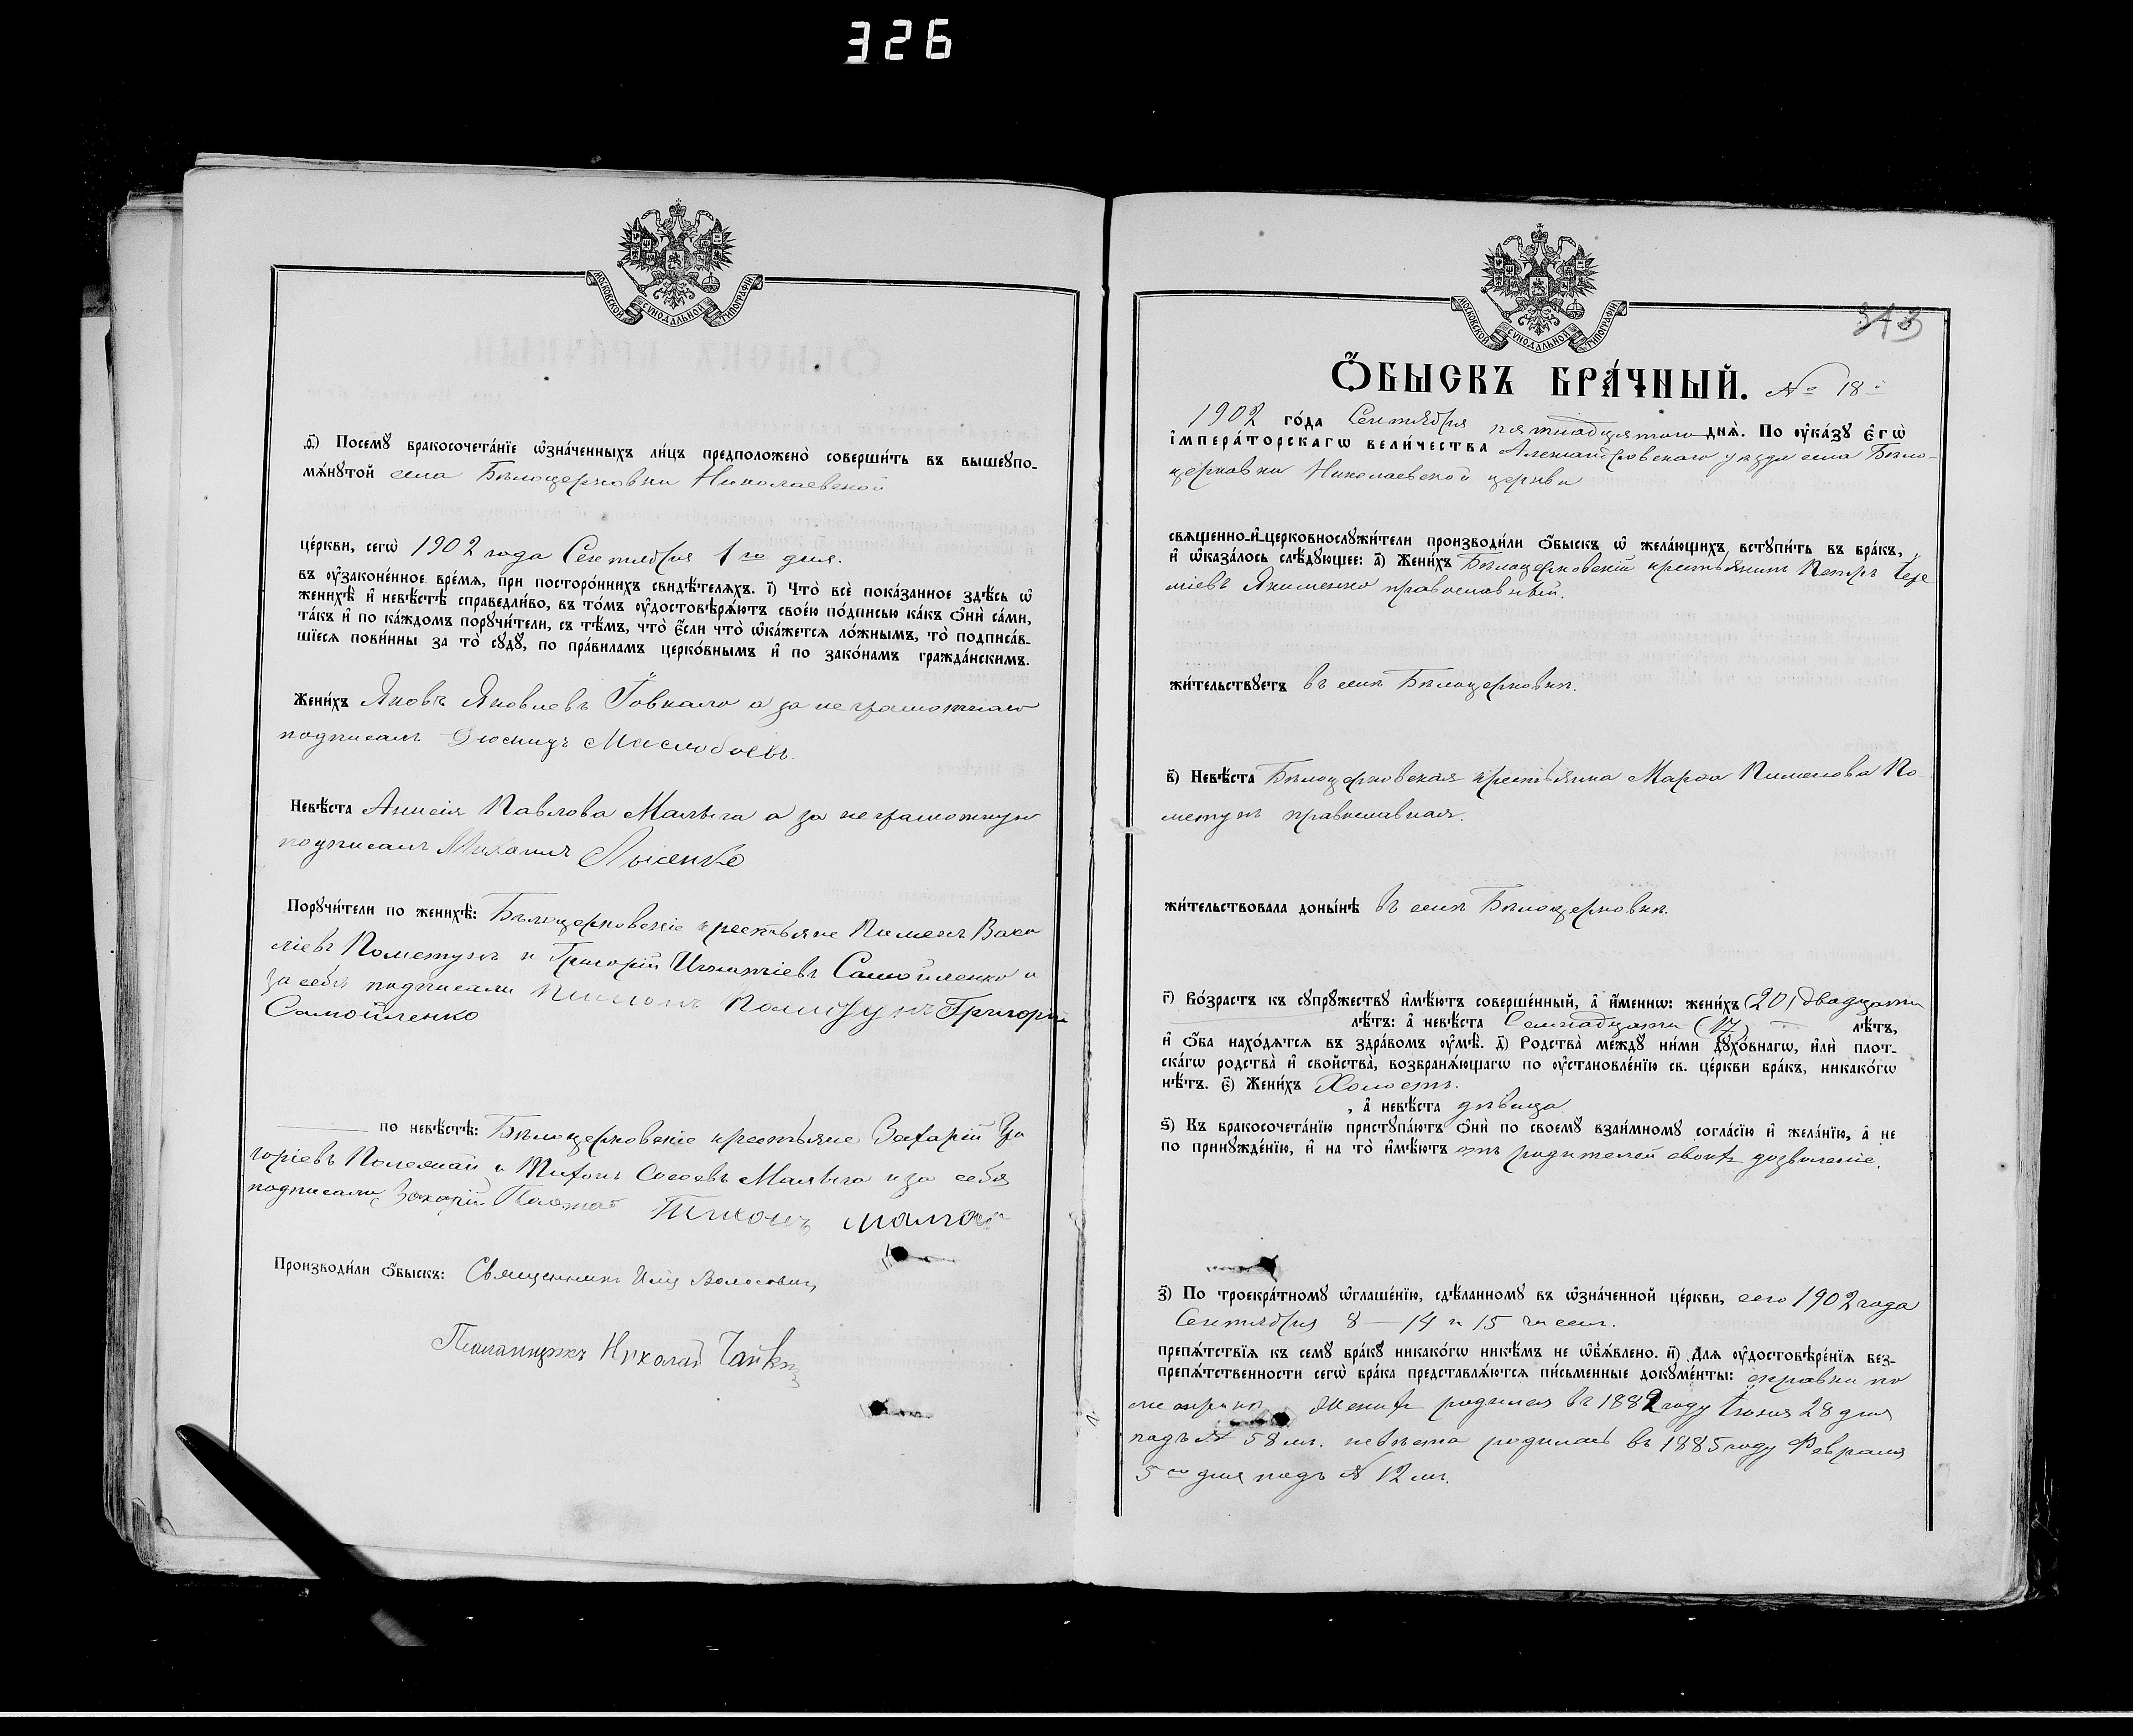 326
МОСКОВСКОЙ СУНОДАЛЬНОЙ ТИПОГРАФІИ
д҃) Посемꙋ бракосочета́нїе ѡ҆зна́ченныхъ ли́цъ предположено̀ соверши́ть въ вышеꙋпо-
мѧ́нꙋтой села Бѣлоцерковки Николаевской
це́ркви, сегѡ̀ 1902 года Сентября 1го дня.
въ ᲂу҆законе́нное вре́мѧ, при посторо́ннихъ свидѣ́телѧхъ. і҃) Что̀ всѐ пока́занное здѣ́сь ѡ҆
женихѣ̀ и҆ невѣ́стѣ справедли́во, въ то́мъ ᲂу҆достовѣрѧ́ютъ свое́ю по́дписью ка́къ ѻ҆нѝ са́ми,
та́къ и҆ по ка́ждомъ порꙋчи́тели, съ тѣ́мъ, что̀ є҆́сли что̀ ѡ҆ка́жетсѧ ло́жнымъ, то̀ подписа́в-
шїесѧ пови́нны за то̀ сꙋдꙋ̀, по пра́виламъ церко́внымъ и҆ по зако́намъ гражда́нскимъ.
Жени́хъ Яковъ Яковлевъ Говкало а за не грамотнаго
подписалъ Маслобоевъ.
Невѣ́ста Анисія Павлова Малыга а за не грамотную
подписалъ Михаилъ Лысенко
Порꙋчи́тели по женихѣ̀: Бѣлоцерковскіе крестьяне Пименъ Васи
ліевъ Пометунъ и Григорій Игнатіевъ Самойленко и
за себя подписали Пименъ Пометунъ Григорій
Самойленко
по невѣ́стѣ: Бѣлоцерковскіе крестьяне Захарій
Полежай и Тихонъ Малыга и за себя
подписали Захарій Полежай Тихонъ Малыга
Производи́ли ѻ҆́быскъ: Священникъ Волосевичъ
Псаломщикъ Николай
МОСКОВСКОЙ СУНОДАЛЬНОЙ ТИПОГРАФІИ
313
Ѻ҆́БЫСКЪ БРА́ЧНЫЙ. № 18й
1902 го́да Сентября пятнадцатаго днѧ̀. По ᲂу҆ка́зꙋ Є҆гѡ̀
і҆мпера́торскагѡ вели́чества Александровскаго уѣзда села Бѣло-
церковки Николаевской церкви
свѧщенно-и҆-церковнослꙋжи́тели производи́ли ѻ҆́быскъ ѡ҆ жела́ющихъ встꙋпи́ть въ бра́къ,
и҆ ѡ҆каза́лось слѣ́дꙋющее: а҃) Жени́хъ Бѣлоцерковскій крестьянинъ Петръ Тере
тіевъ Якименко православный.
жи́тельствꙋетъ въ селѣ Бѣлоцерковкѣ.
в҃) Невѣ́ста Бѣлоцерковская крестьянка Марѳа Пименова По
метунъ православная.
жи́тельствовала доны́нѣ въ селѣ Бѣлоцерковкѣ.
г҃) Во́зрастъ къ сꙋпрꙋ́жествꙋ и҆мѣ́ютъ соверше́нный, а҆ и҆́менню: жени́хъ (20) двадцати
лѣ́тъ: а҆ невѣ́ста Семнадцати (17) лѣ́тъ,
и҆ ѻ҆́ба нахо́дѧтсѧ въ здра́вомъ ᲂу҆мѣ̀. д҃) Родства̀ ме́ждꙋ ни́ми дꙋхо́внагѡ, и҆лѝ плот-
ска́гѡ родства̀ и҆ свойства̀, возбранѧ́ющагѡ по ᲂу҆становле́нїю св. це́ркви бра́къ, никако́гѡ
нѣ́тъ. є҃) Жени́хъ Холостъ.
, а҆ невѣ́ста дѣвица
ѕ҃) Къ бракосочета́нїю пристꙋпа́ютъ ѻ҆нѝ по своемꙋ̀ взаи́мномꙋ согла́сїю и҆ жела́нїю, а҆ не
по принꙋжде́нїю, и҆ на то̀ и҆мѣ́ютъ отъ родителей своихъ дозволеніе.
з҃) По троекра́тномꙋ ѡ҆глаше́нїю, сдѣ́ланномꙋ въ ѡ҆зна́ченной це́ркви, сего 1902 года
Сентября 8 — 14 и 15 чиселъ.
препѧ́тствїѧ къ семꙋ̀ бра́кꙋ никако́гѡ никѣ́мъ не ѡ҆б̾ѧ́влено. и҃) Длѧ ᲂу҆достовѣре́нїѧ без-
препѧ́тственности сегѡ̀ бра́ка представлѧ́ютсѧ пи́сьменные докꙋме́нты: справки по
метрикѣ. Женихъ родился въ 1882 году Іюня 28 дня
подъ № 58 м. невѣста родилась въ 1885 году Февраля
5го дня подъ № 12 м.